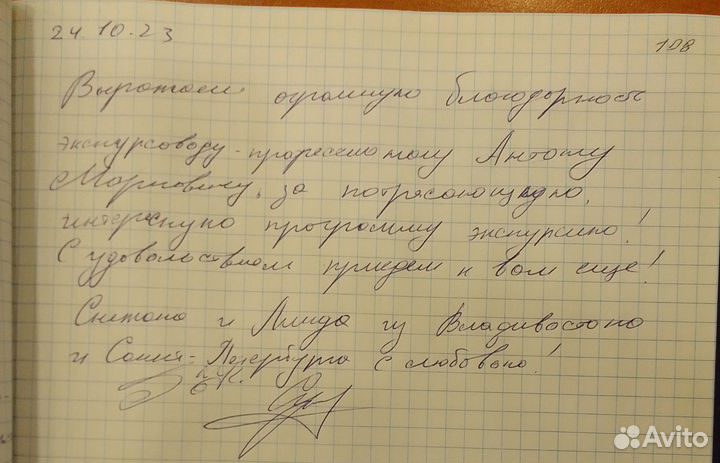 24.10.23
108
Выражаем огромную благодарность
экскурсоводу-профессионалу Антону
Марковичу, за потрясающую,
интересную программу экскурсию!
С удовольствием приедем к вам ещё!
Снежана и Линда из Владивостока
и Санкт-Петербурга с любовью!
Avito